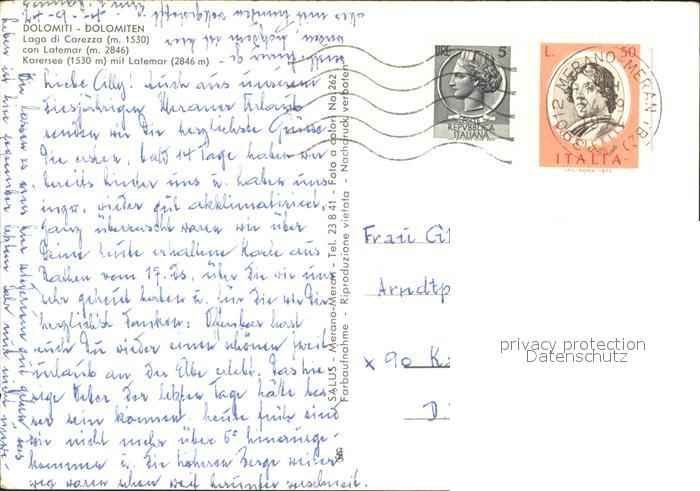 DOLOMITI - DOLOMITEN
Lago di Carezza (m. 1530)
con Latemar (m. 2846)
Karersee (1530 m) mit Latemar (2846 m)
Liebe Cilly! Auch aus unserem
diesjährigen Meraner Urlaub
senden wir Dir herzlichste Grüße
Die ersten, bald 14 Tage haben wir
bereits hinter uns u. haben uns
inzw. wieder gut akklimatisiert.
Ganz überrascht waren wir über
Deine heute erhaltene Karte aus
Rathen vom 17. ds., über die wir uns
sehr gefreut haben u. für die wir Dir
herzlichst danken. Offenbar hast
auch Du wieder einen schönen Zweit-
urlaub an der Elbe erlebt. Das hie-
sige Wetter der letzten Tage hätte bes-
ser sein können. Heute früh sind
wir nicht mehr über 6° hinausge-
kommen u. die höheren Berge weiter
weg waren schon weit herunter verschneit.
SALUS - Merano-Meran - Tel. 23 8 41 - Foto a color No. 262
Farbaufnahme - Riproduzione vietata - Nachdruck verboten
LIRE 5
REPVBBLICA
ITALIANA
L. 50
ITALIA
I.P.S. - ROMA - 1973
MERANO-MERAN (BZ)
Frau Ci
Arndtp
x 90 K
D
privacy protection
Datenschutz